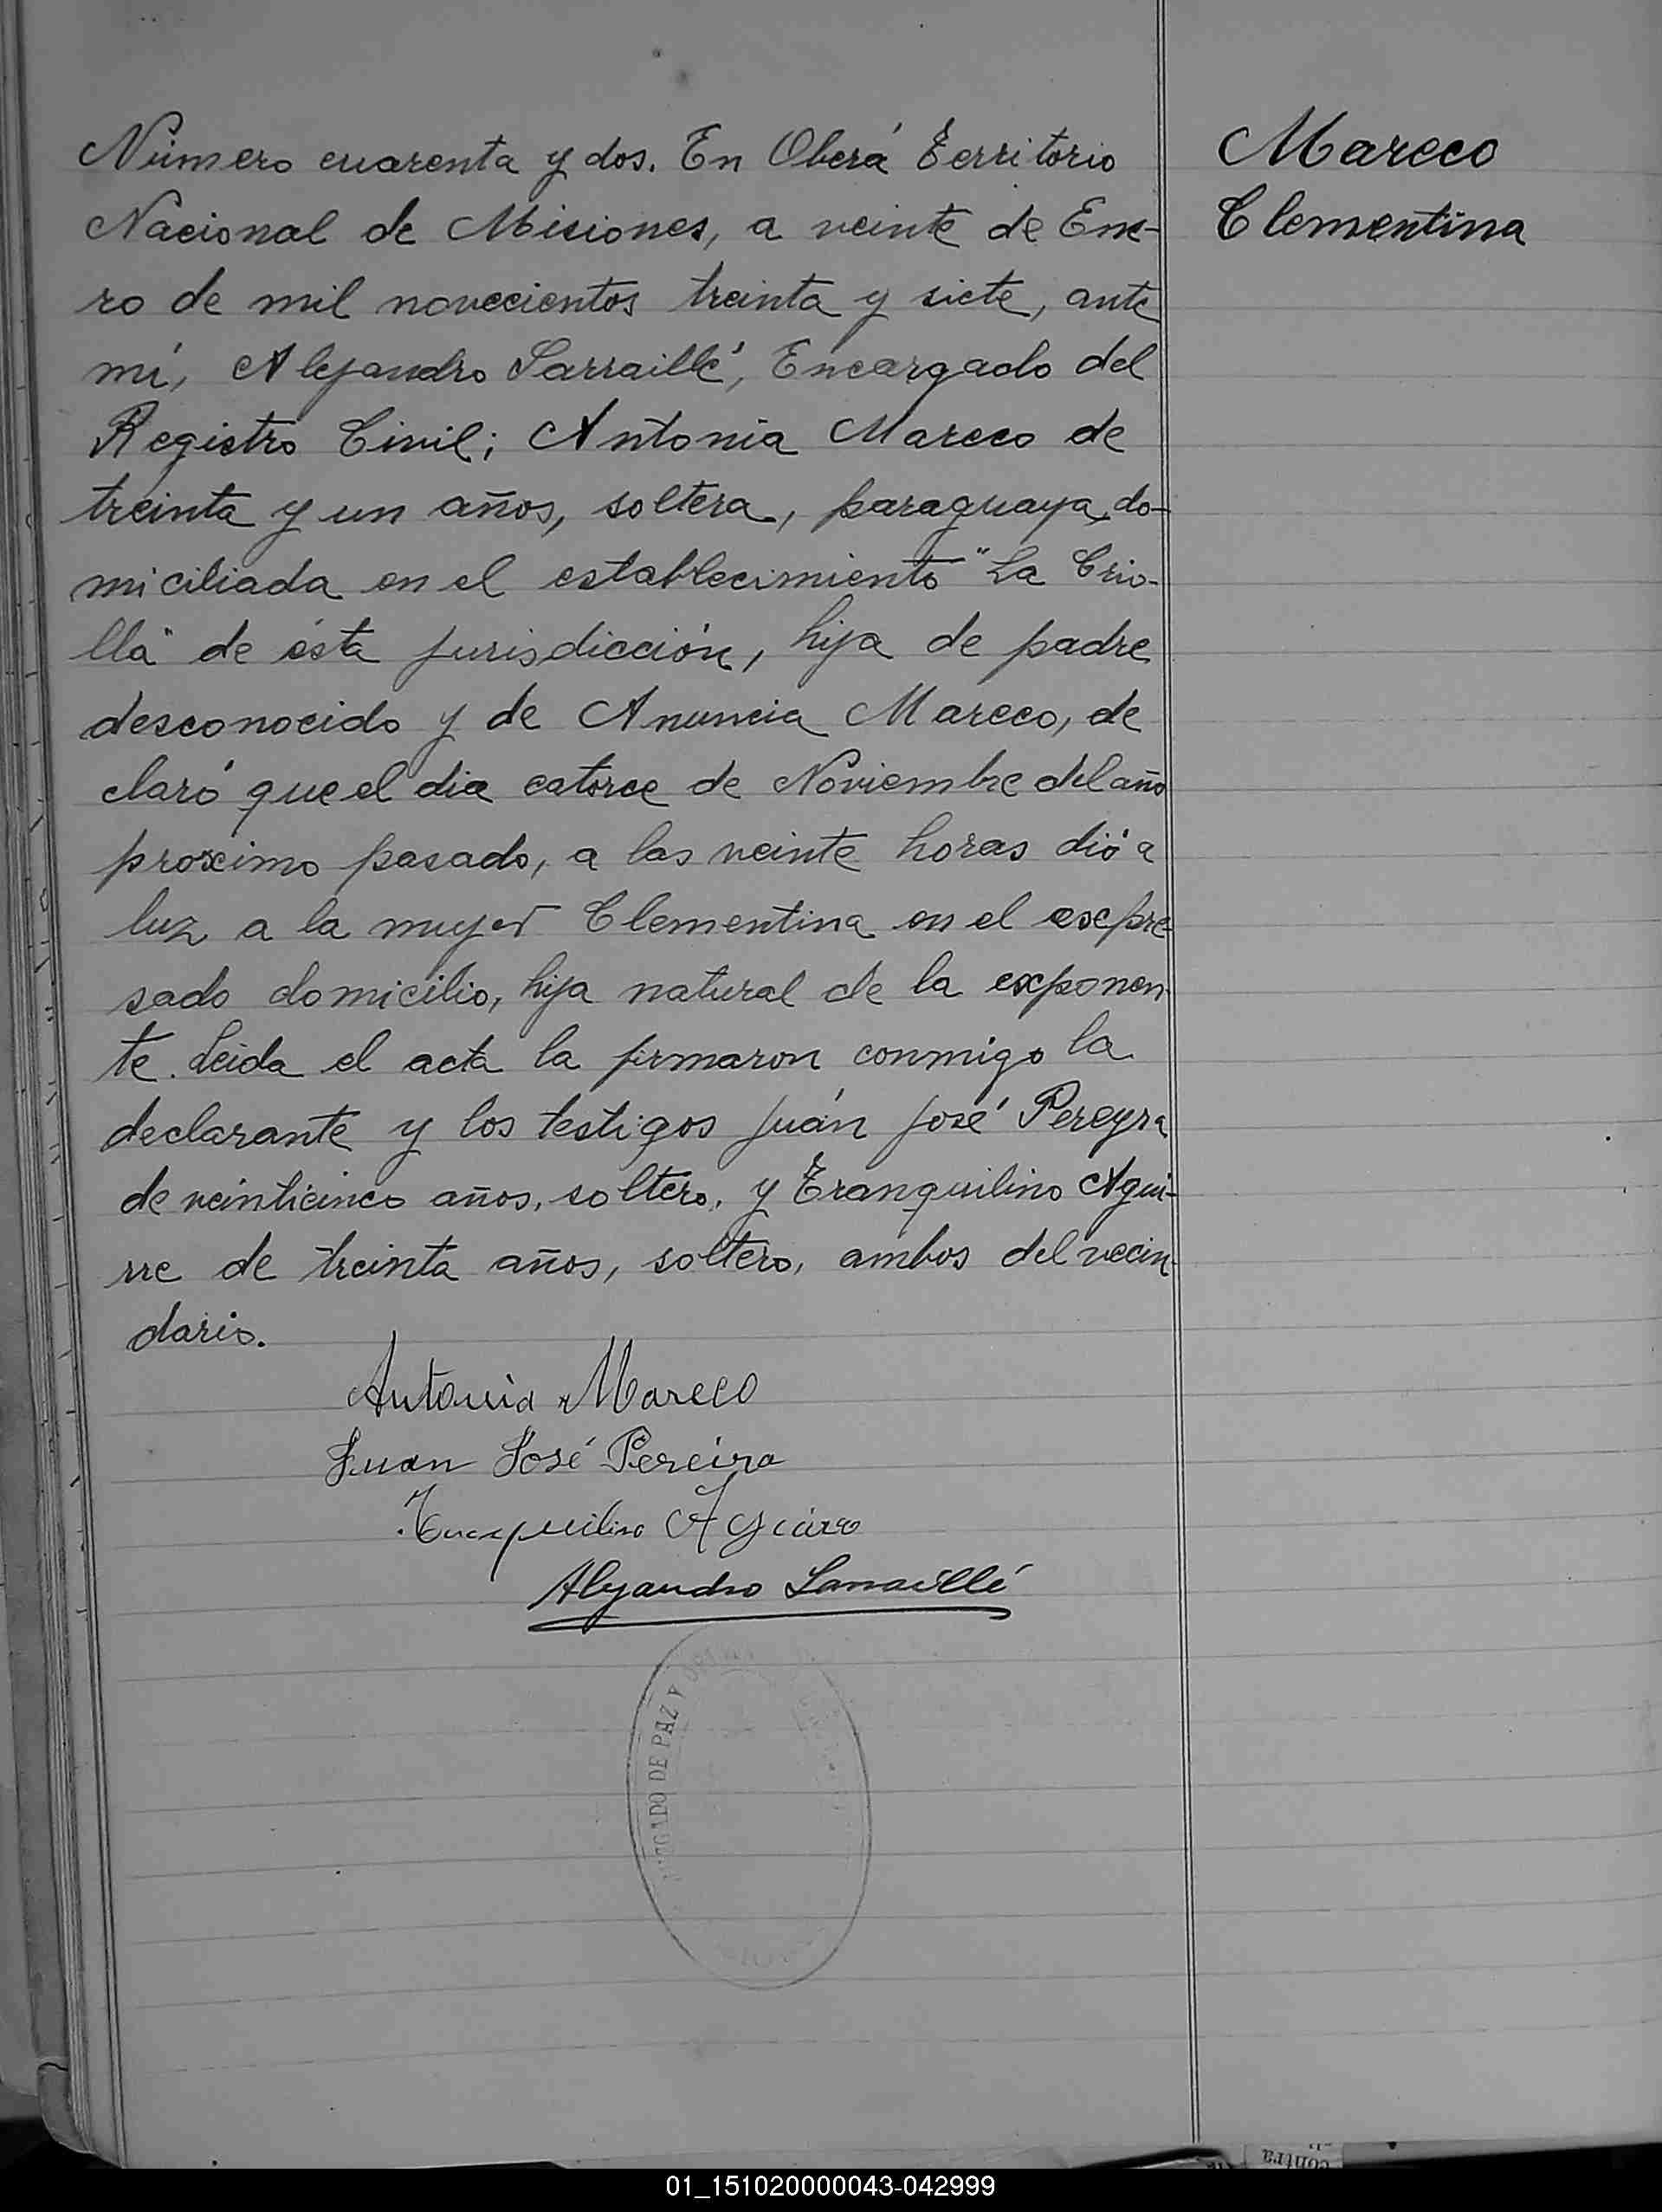 Número cuarenta y dos. En Oberá Territorio
Nacional de Misiones, a veinte de Ene-
ro de mil novecientos treinta y siete, ante
mí, Alejandro Sarraillé, Encargado del
Registro Civil; Antonia Mareco de
treinta y un años, soltera, paraguaya, do-
miciliada en el establecimiento "La Crio-
lla" de ésta jurisdicción, hija de padre
desconocido y de Anuncia Mareco, de
claró que el dia catorce de Noviembre del año
proximo pasado, a las veinte horas dió a
luz a la mujer Clementina en el expre-
sado domicilio, hija natural de la exponen-
te. Leida el acta la firmaron conmigo la
declarante y los testigos Juán José Pereyra
de veinticinco años, soltero, y Tranquilino Agui-
rre de treinta años, soltero, ambos del vecin-
dario.
Mareco
Clementina
Antonia Mareco
Juan José Pereira
Alejandro Sarraillé
JUZGADO DE PAZ Y
contra
01_151020000043-042999